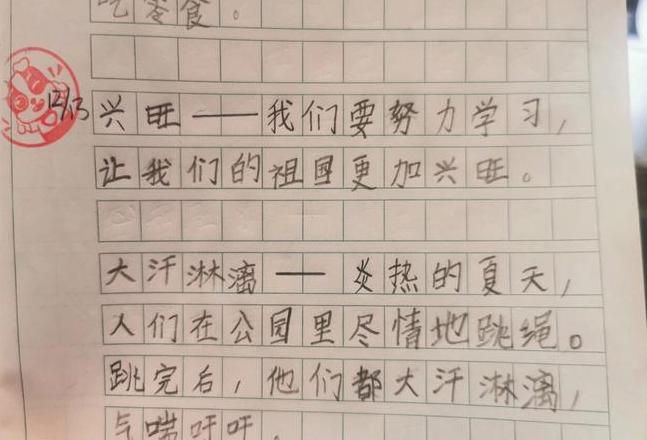 吃零食。
12/13
兴旺——我们要努力学习，
让我们的祖国更加兴旺。
大汗淋漓——炎热的夏天，
人们在公园里尽情地跳绳。
跳完后，他们都大汗淋漓，
气喘吁吁，